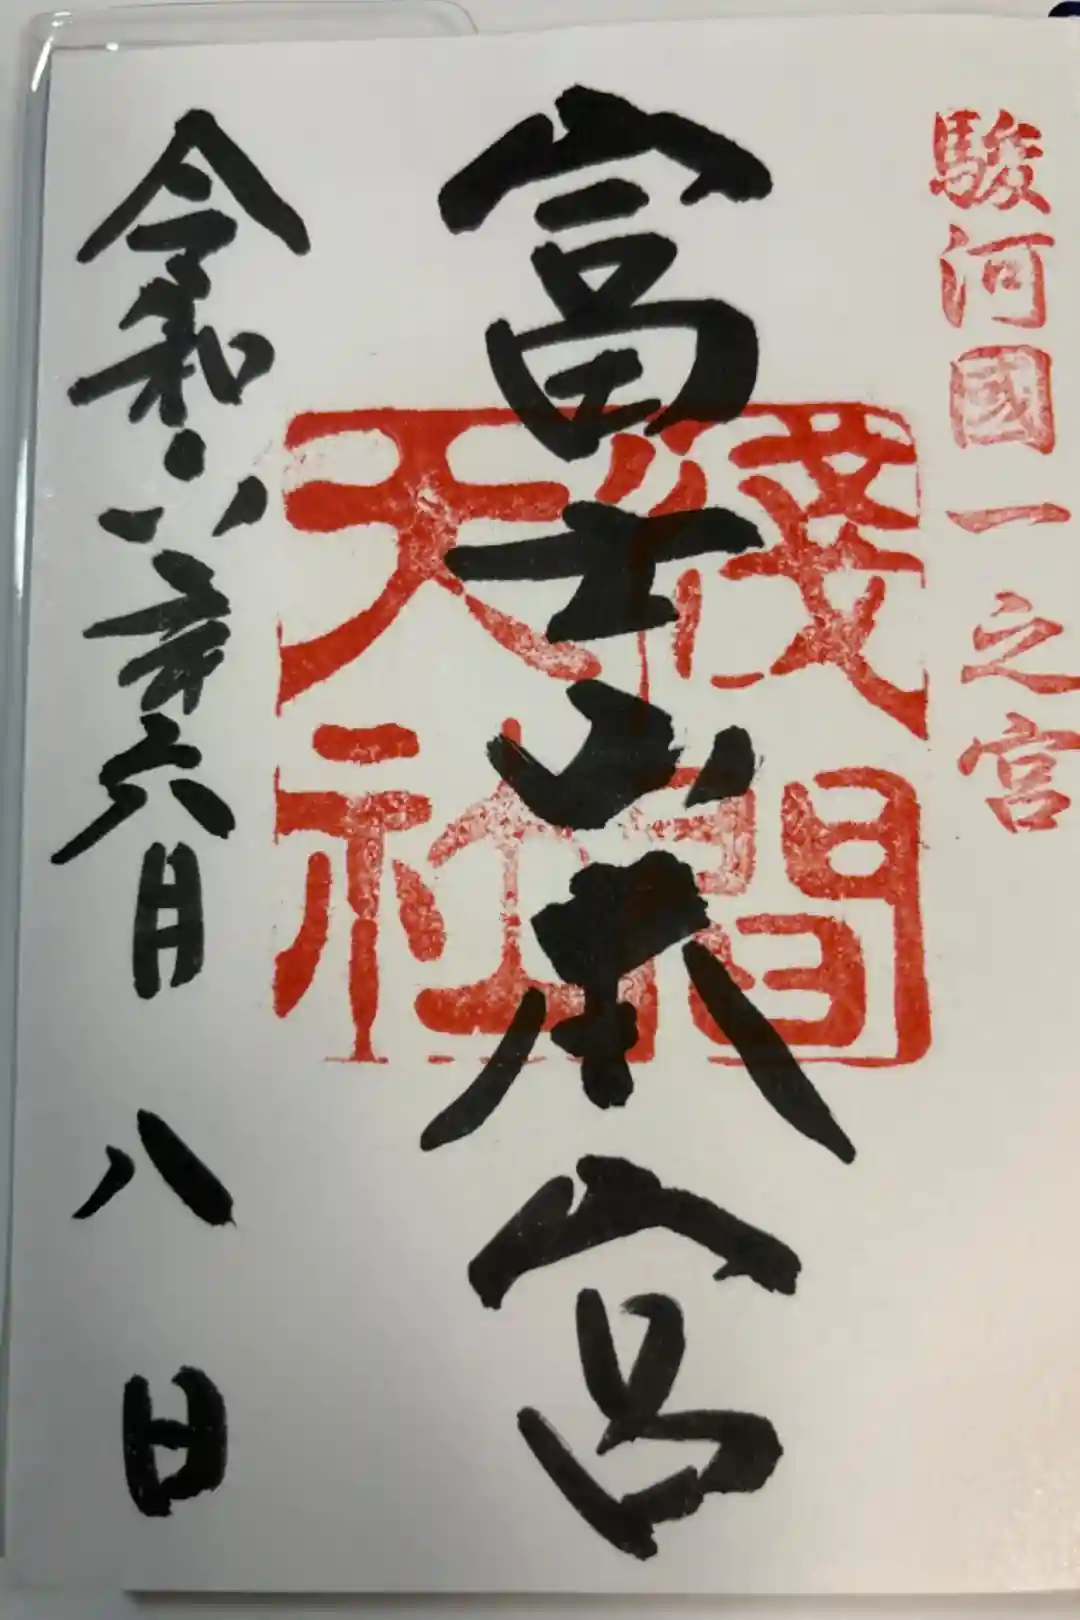 駿河國一之宮
富士山本宮
淺間
大社
令和六年六月八日